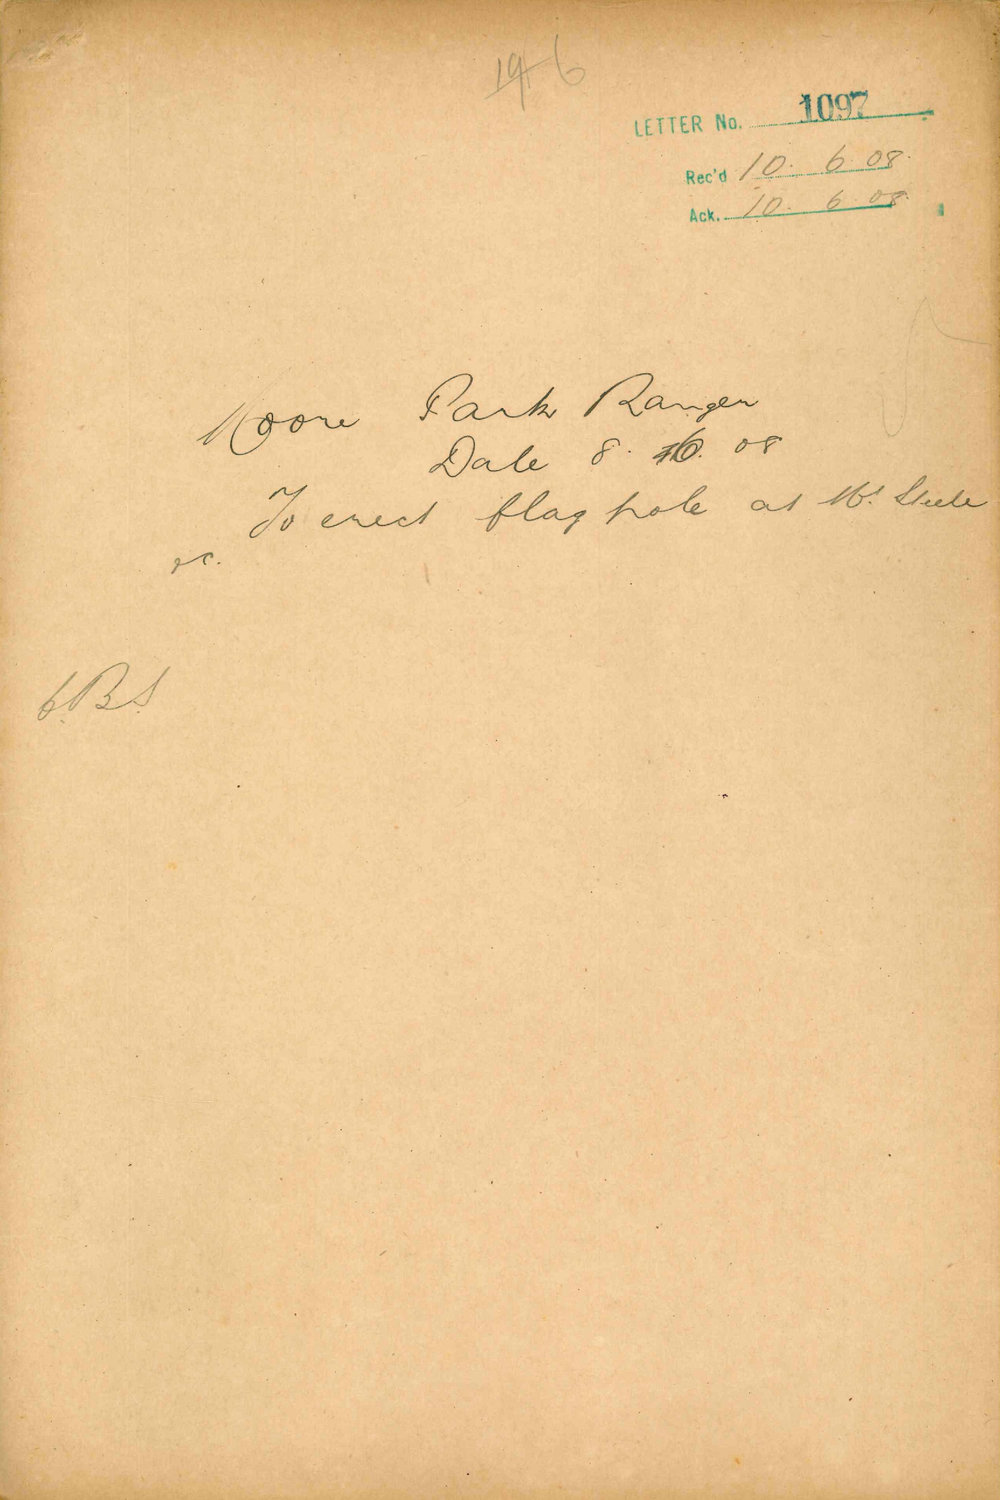 LETTER No. 1097
Rec'd 10. 6 08.
Ack. 10. 6 08
Moore Park Ranger
Date 8. 6. 08
To erect flag pole at Mt Steele